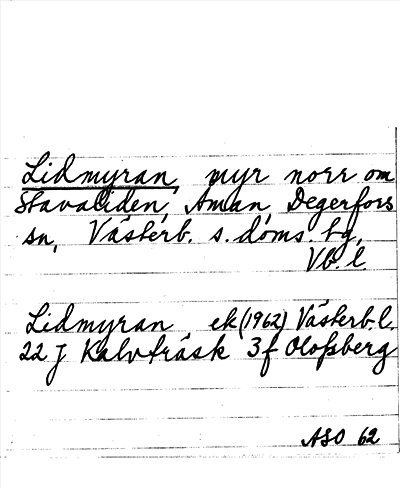 Lidmyran, myr norr om
Stavaliden, Åman, Degerfors
sn, Västerb. s. doms. bg,
Vb. l.
Lidmyran ek (1962) Västerb. l.
22 J Kalvträsk 3f Olofsberg
ASO 62